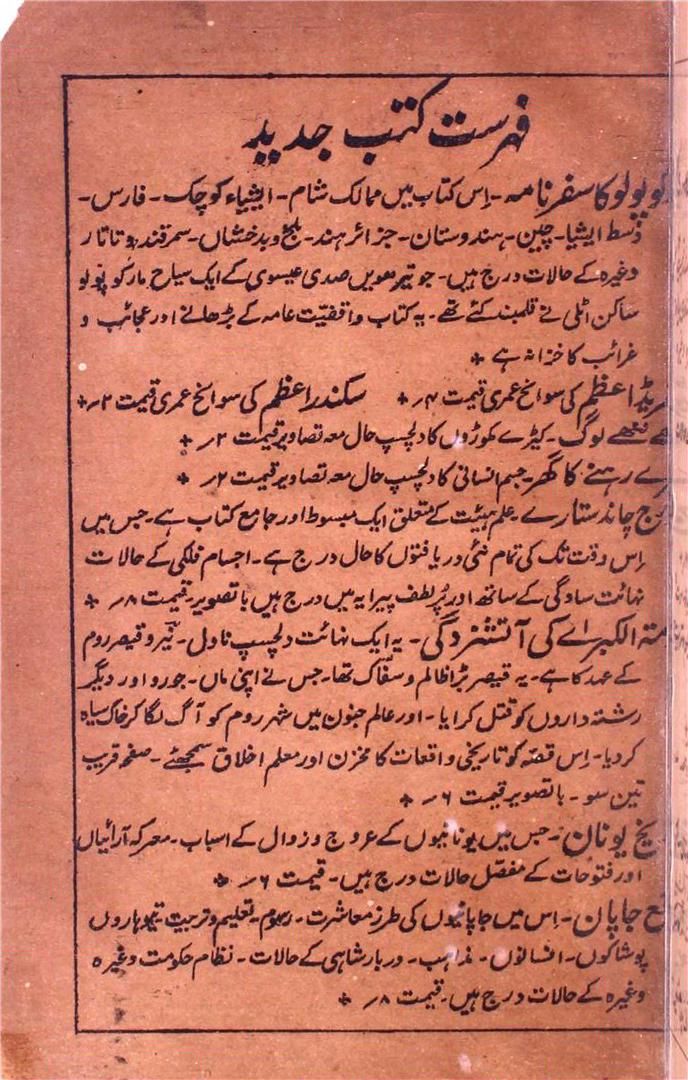 فہرست کتب جدید
کو پولو کا سفر نامہ ۔ اِس کتاب میں ممالک شام ۔ ایشیاء کوچک ۔ فارس ۔
وسط ایشیا ۔ چین ۔ ہندوستان ۔ جزائر ہند ۔ بلخ و بدخشاں ۔ سمرقند و تاتار
وغیرہ کے حالات درج ہیں ۔ جو تیرھویں صدی عیسوی کے ایک سیاح مارکو پولو
ساکن اٹلی نے قلمبند کئے تھے ۔ یہ کتاب واقفیّت عامہ کے بڑھانے اور عجائب و
غرائب کا خزانہ ہے +
اعظم کی سوانح عمری قیمت ۴؍ + سکندر اعظم کی سوانح عمری قیمت ۲؍ +
ننھے لوگ ۔ کیڑے کوڑوں کا دلچسپ حال معہ تصاویر قیمت ۲؍ +
رے رہنے کا گھر ۔ جسم انسانی کا دلچسپ حال معہ تصاویر قیمت ۲؍ +
رج چاند ستارے ۔ علم ہیئت کے متعلق ایک مبسوط اور جامع کتاب ہے ۔ جس میں
اِس وقت تک کی تمام نئی دریافتوں کا حال درج ہے ۔ اجسام فلکی کے حالات
نہائت سادگی کے ساتھ اور پُر لطف پیرایہ میں درج ہیں با تصویر ۔ قیمت ۸؍ +
متہ الکبرےٰ کی آتشزدگی ۔ یہ ایک نہائت دلچسپ ناول ۔ نیرو قیصر روم
کے عہد کا ہے ۔ یہ قیصر بڑا ظالم و سفّاک تھا ۔ جس نے اپنی ماں ۔ جورو اور دیگر
رشتہ داروں کو قتل کرایا ۔ اور عالم جنون میں شہر روم کو آگ لگا کر خاک سیاہ
کر دیا ۔ اِس قصّہ کو تاریخی واقعات کا مخزن اور معلم اخلاق سمجھئے ۔ صفحے قریب
تین سو ۔ با تصویر قیمت ۶؍ +
یخ یونان ۔ جس میں یونانیوں کے عروج و زوال کے اسباب ۔ معرکہ آرائیاں
اور فتوحات کے مفصّل حالات درج ہیں ۔ قیمت ۶؍ +
جاپان ۔ اِس میں جاپانیوں کی طرز معاشرت ۔ رسوم ۔ تعلیم و تربیت تیوہاروں
پوشاکوں ۔ افسانوں ۔ مذاہب ۔ دربار شاہی کے حالات ۔ نظام حکومت وغیرہ
وغیرہ کے حالات درج ہیں ۔ قیمت ۸؍ +